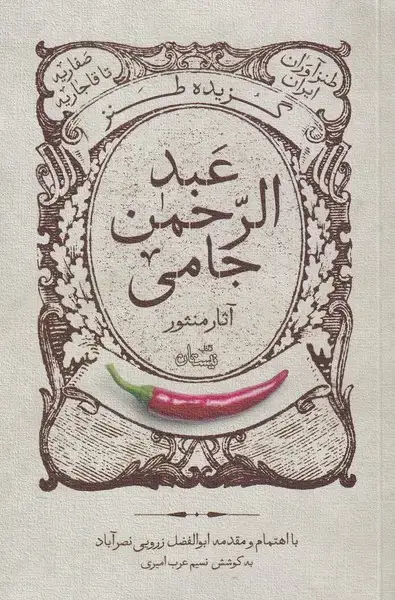 طنزآوران
ایران
صفاریه
تا قاجاریه
گزیده طنز
عبد
الرّحمن
جامی
آثار منثور
کتاب نیستان
با اهتمام و مقدمه ابوالفضل زرویی نصرآباد
به کوشش نسیم عرب امیری